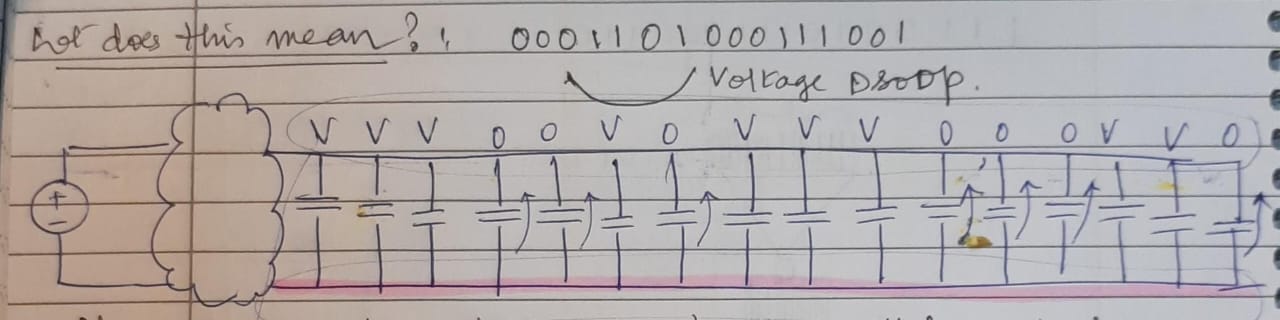 does this mean? : 0001101000111001
Voltage Droop.
V V V 0 0 V 0 V V V 0 0 0 V V 0
+
−